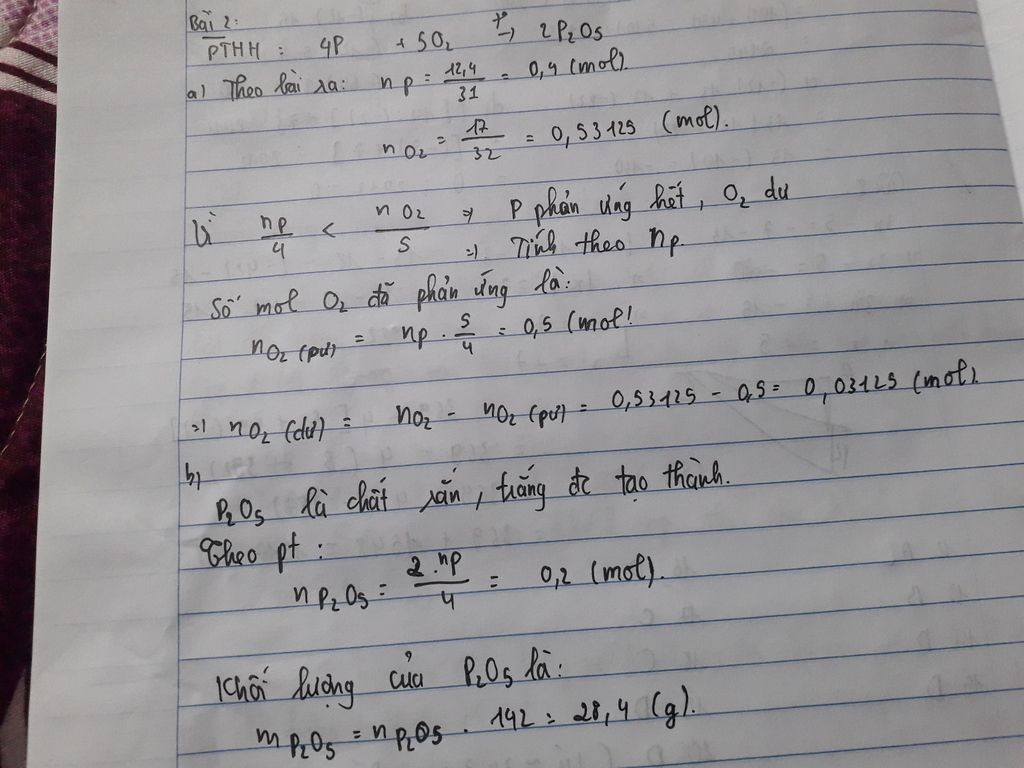 Bài 2:
PTHH: 4P + 5O₂ →(t°) 2P₂O₅
a) Theo bài ra: nP = 12,4/31 = 0,4 (mol).
nO₂ = 17/32 = 0,53125 (mol).
Vì nP/4 < nO₂/5 => P phản ứng hết, O₂ dư
=> Tính theo nP.
Số mol O₂ đã phản ứng là:
nO₂ (pư) = nP . 5/4 = 0,5 (mol)
=> nO₂ (dư) = nO₂ - nO₂ (pư) = 0,53125 - 0,5 = 0,03125 (mol).
b)
P₂O₅ là chất rắn, trắng đc tạo thành.
Theo pt:
nP₂O₅ = 2.nP/4 = 0,2 (mol).
Khối lượng của P₂O₅ là:
mP₂O₅ = nP₂O₅ . 142 = 28,4 (g).